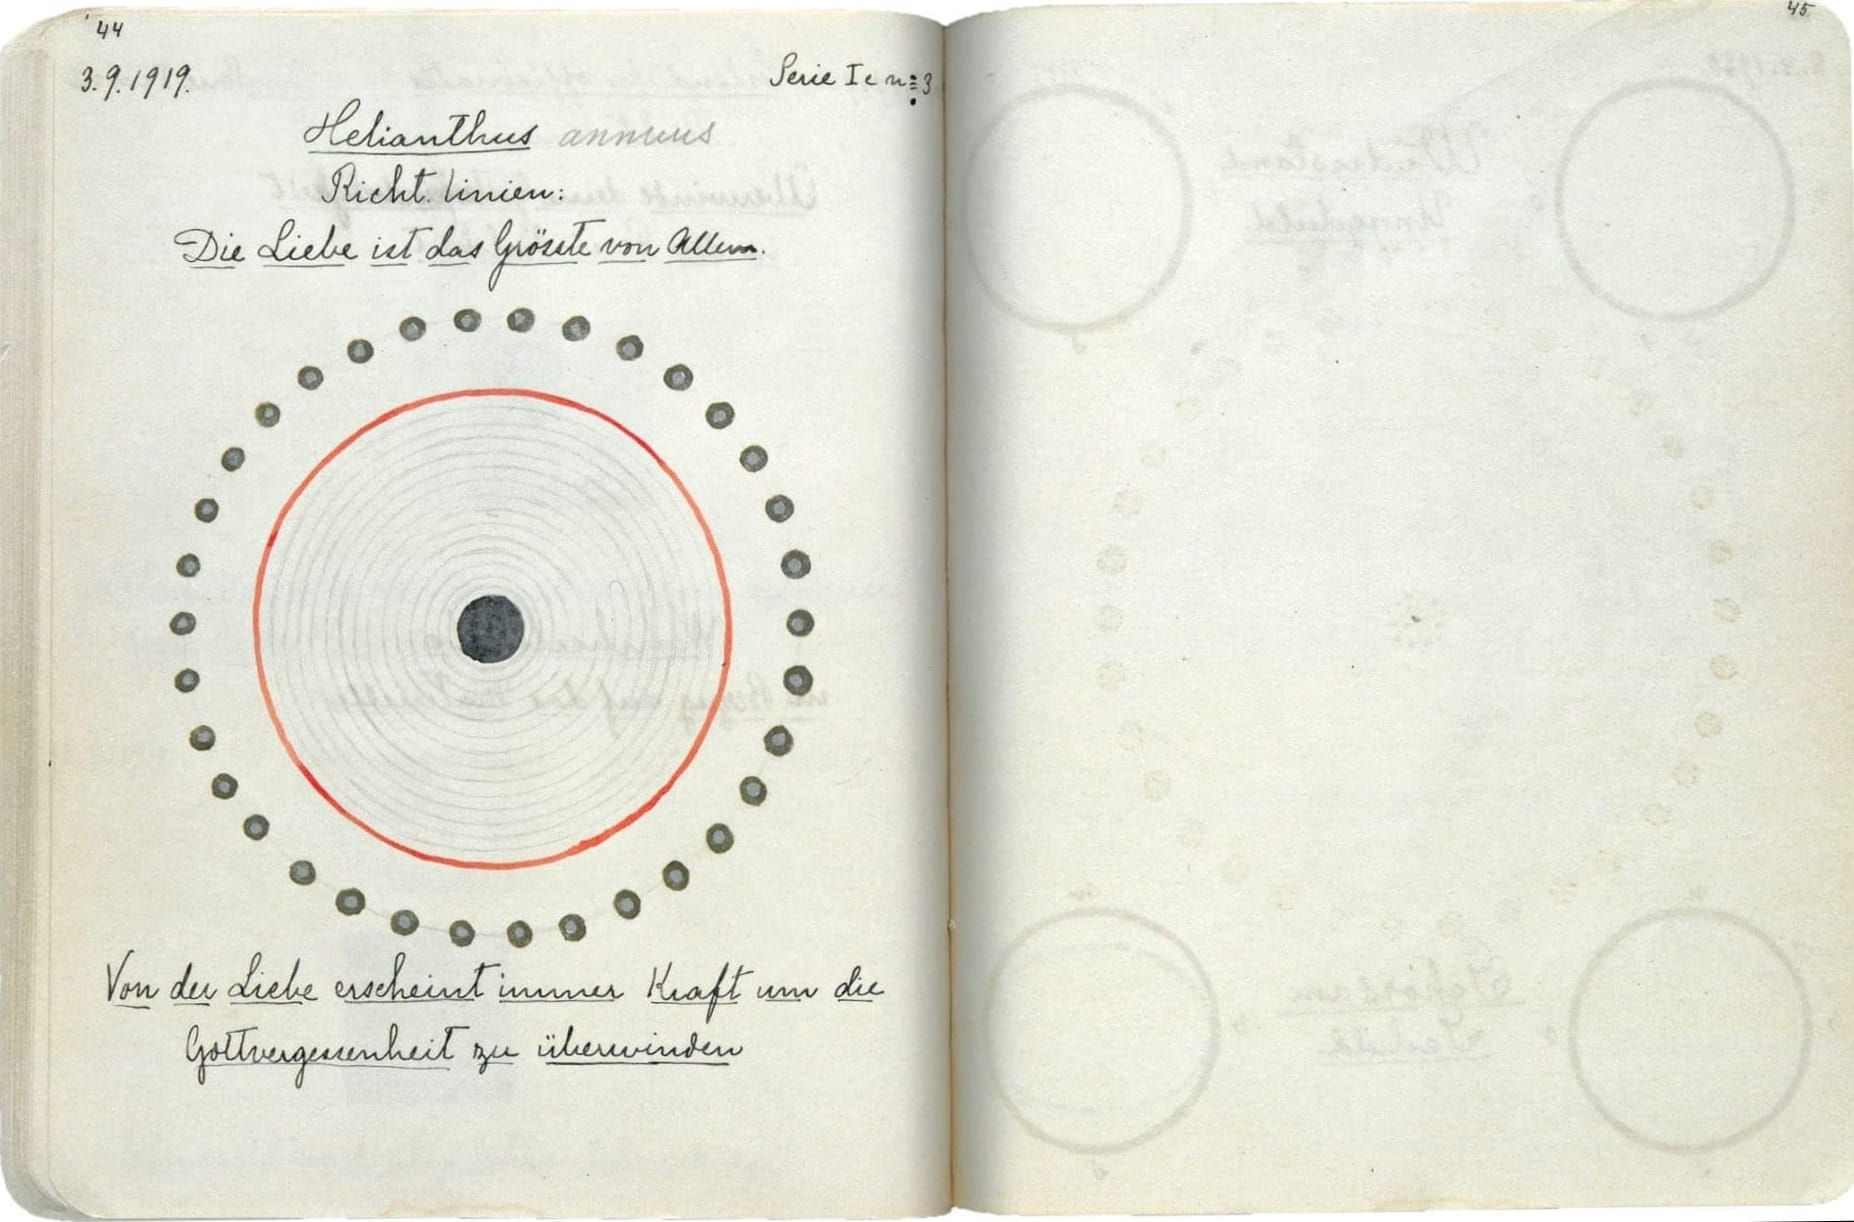 44
3.9.1919.
Serie I c n: 3
Helianthus annuus
Richt. linien:
Die Liebe ist das Grösste von Allem.
Von der Liebe erscheint immer Kraft um die
Gottvergessenheit zu überwinden
45.